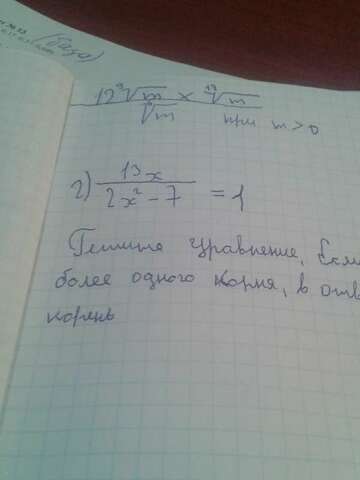 (база)
12 ⁹√m × ¹⁸√m
√m при m > 0
2) 13x / 2x² - 7 = 1
Решите уравнение, Если
более одного корня, в отв
корень